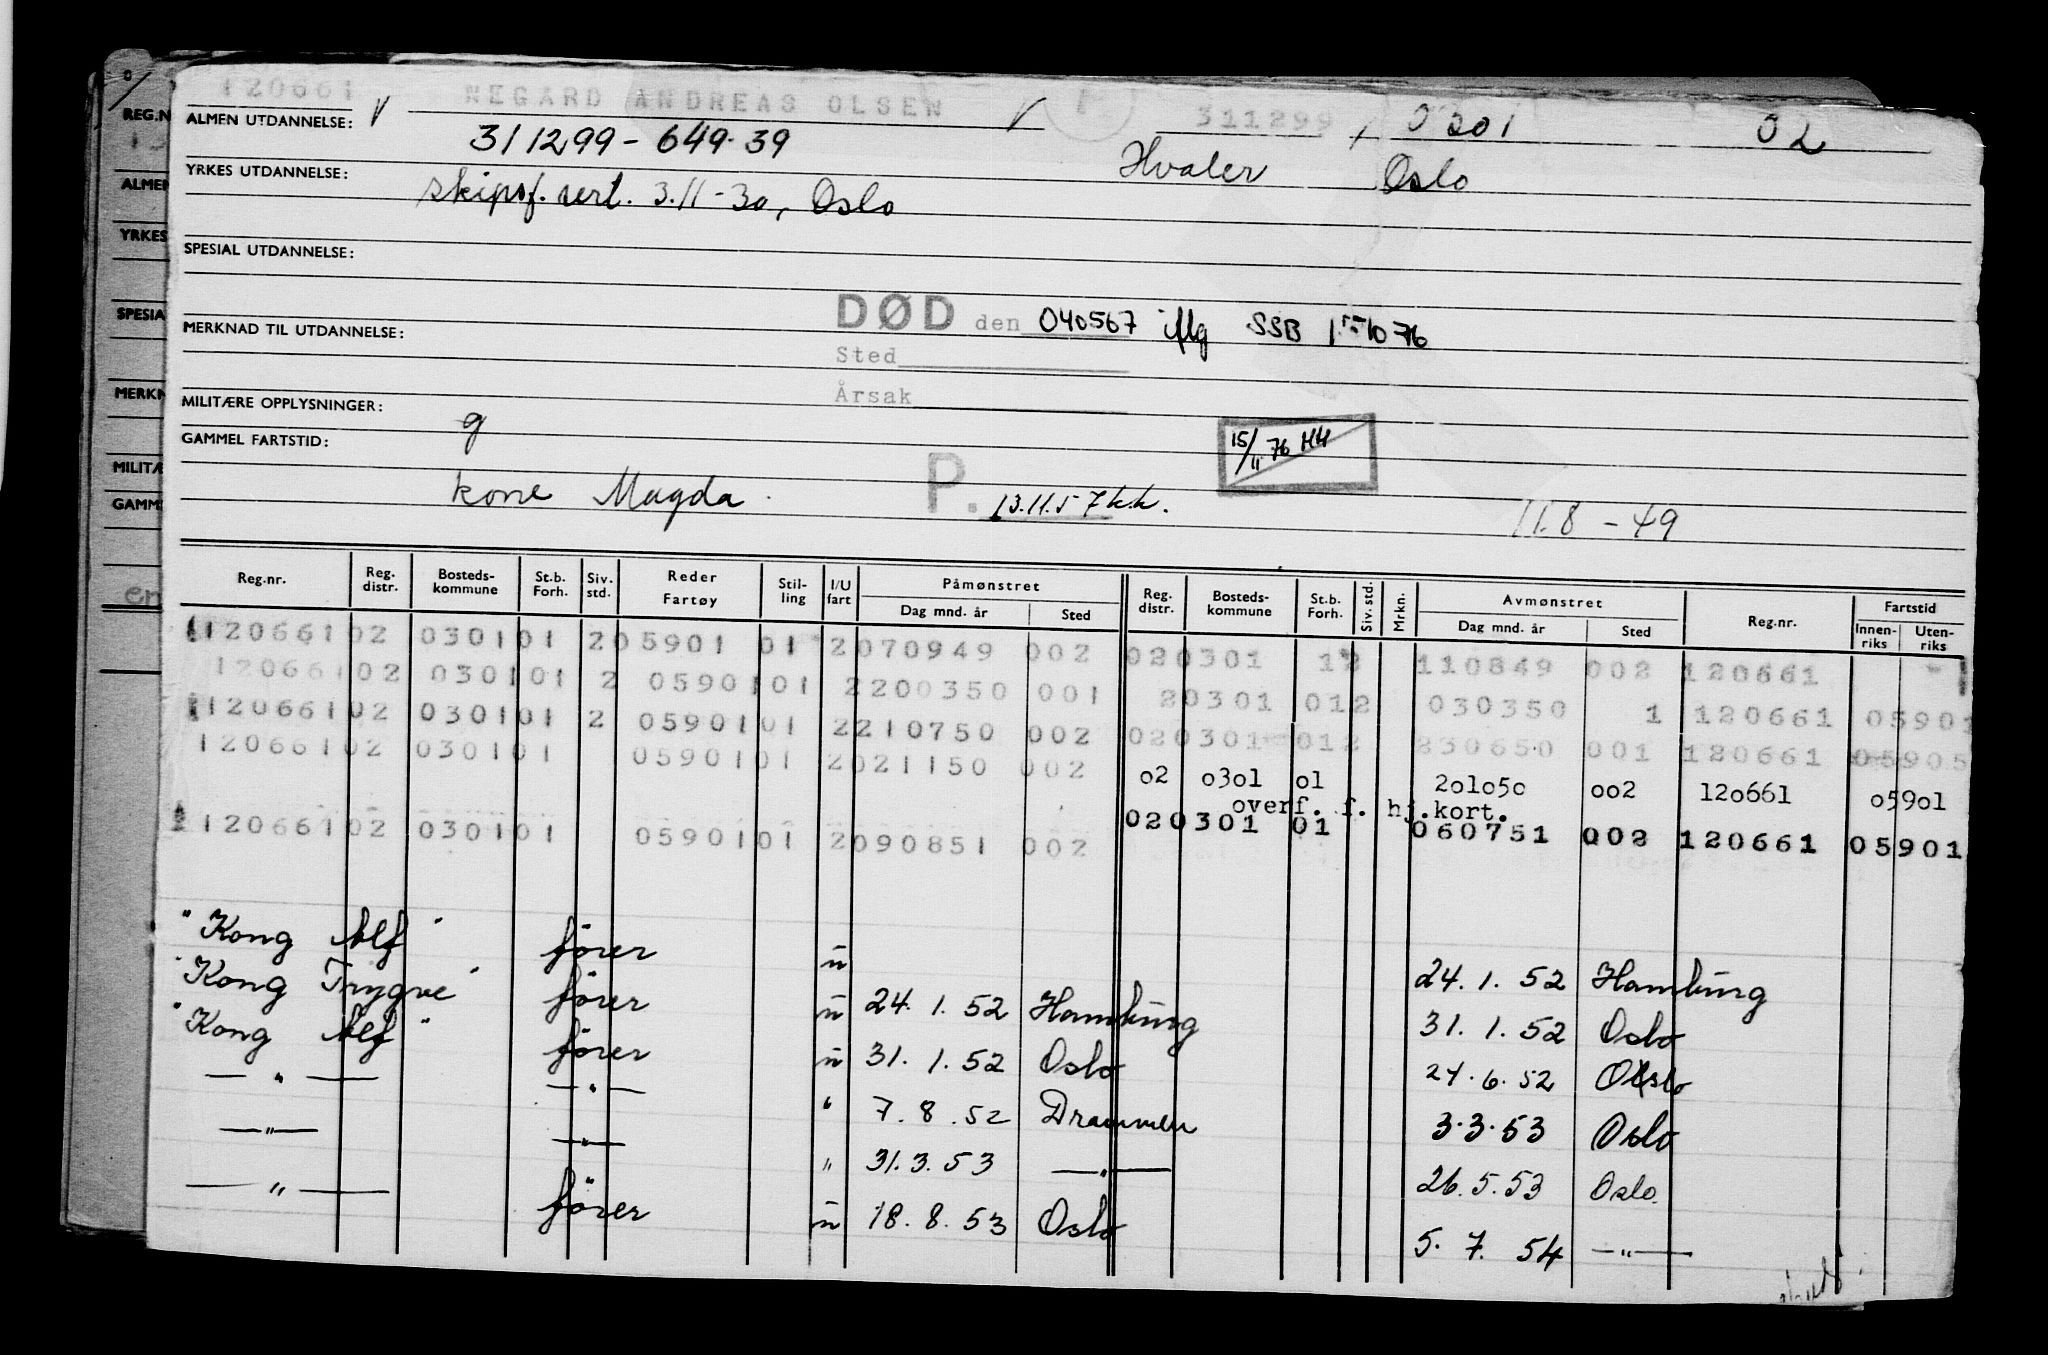 120661 NEGARD ANDREAS OLSEN 311299 0301 02
ALMEN UTDANNELSE:
311299 - 649.39 Hvaler Oslo
YRKES UTDANNELSE:
skipsf. sert. 3.11-30, Oslo
SPESIAL UTDANNELSE:
DØD den 040567 iflg SSB
MERKNAD TIL UTDANNELSE:
Sted
Årsak
MILITÆRE OPPLYSNINGER:
g
15/11 76 HH
GAMMEL FARTSTID:
kone Magda. P. 13.11.57 k.k. 11.8-49
Reg.nr. Reg. distr. Bosteds-kommune St.b. Forh. Siv. std. Reder Fartøy Stil-ling I/U fart Påmønstret Dag mnd. år Sted Reg. distr. Bosteds-kommune St.b. Forh. Siv. std. Mrkn. Avmønstret Dag mnd. år Sted Reg.nr. Fartstid Innen-riks Uten-riks
120661 02 0301 01 2 05901 01 2 070949 002 02 0301 12 110849 002 120661
120661 02 0301 01 2 05901 01 2 200350 001 2 0301 012 030350 1 120661 05901
120661 02 0301 01 2 05901 01 2 210750 002 02 0301 012 230650 001 120661 05905
120661 02 0301 01 05901 01 2 021150 002 o2 o3o1 o1 2o1o5o oo2 12o661 o59o1
overf. f. hj.kort.
120661 02 0301 01 05901 01 2 090851 002 02 0301 01 060751 002 120661 05901
"Kong Alf" fører u 24. 1. 52 Hamburg
"Kong Trygve" fører u 24. 1. 52 Hamburg 31. 1. 52 Oslo
"Kong Alf" fører u 31. 1. 52 Oslo 24. 6. 52 Oslo
— " — — " — " 7. 8. 52 Drammen 3.3.53 Oslo
— " — — " — " 31. 3. 53 — " — 26. 5. 53 Oslo.
— " — fører u 18. 8. 53 Oslo 5. 7. 54 — " —